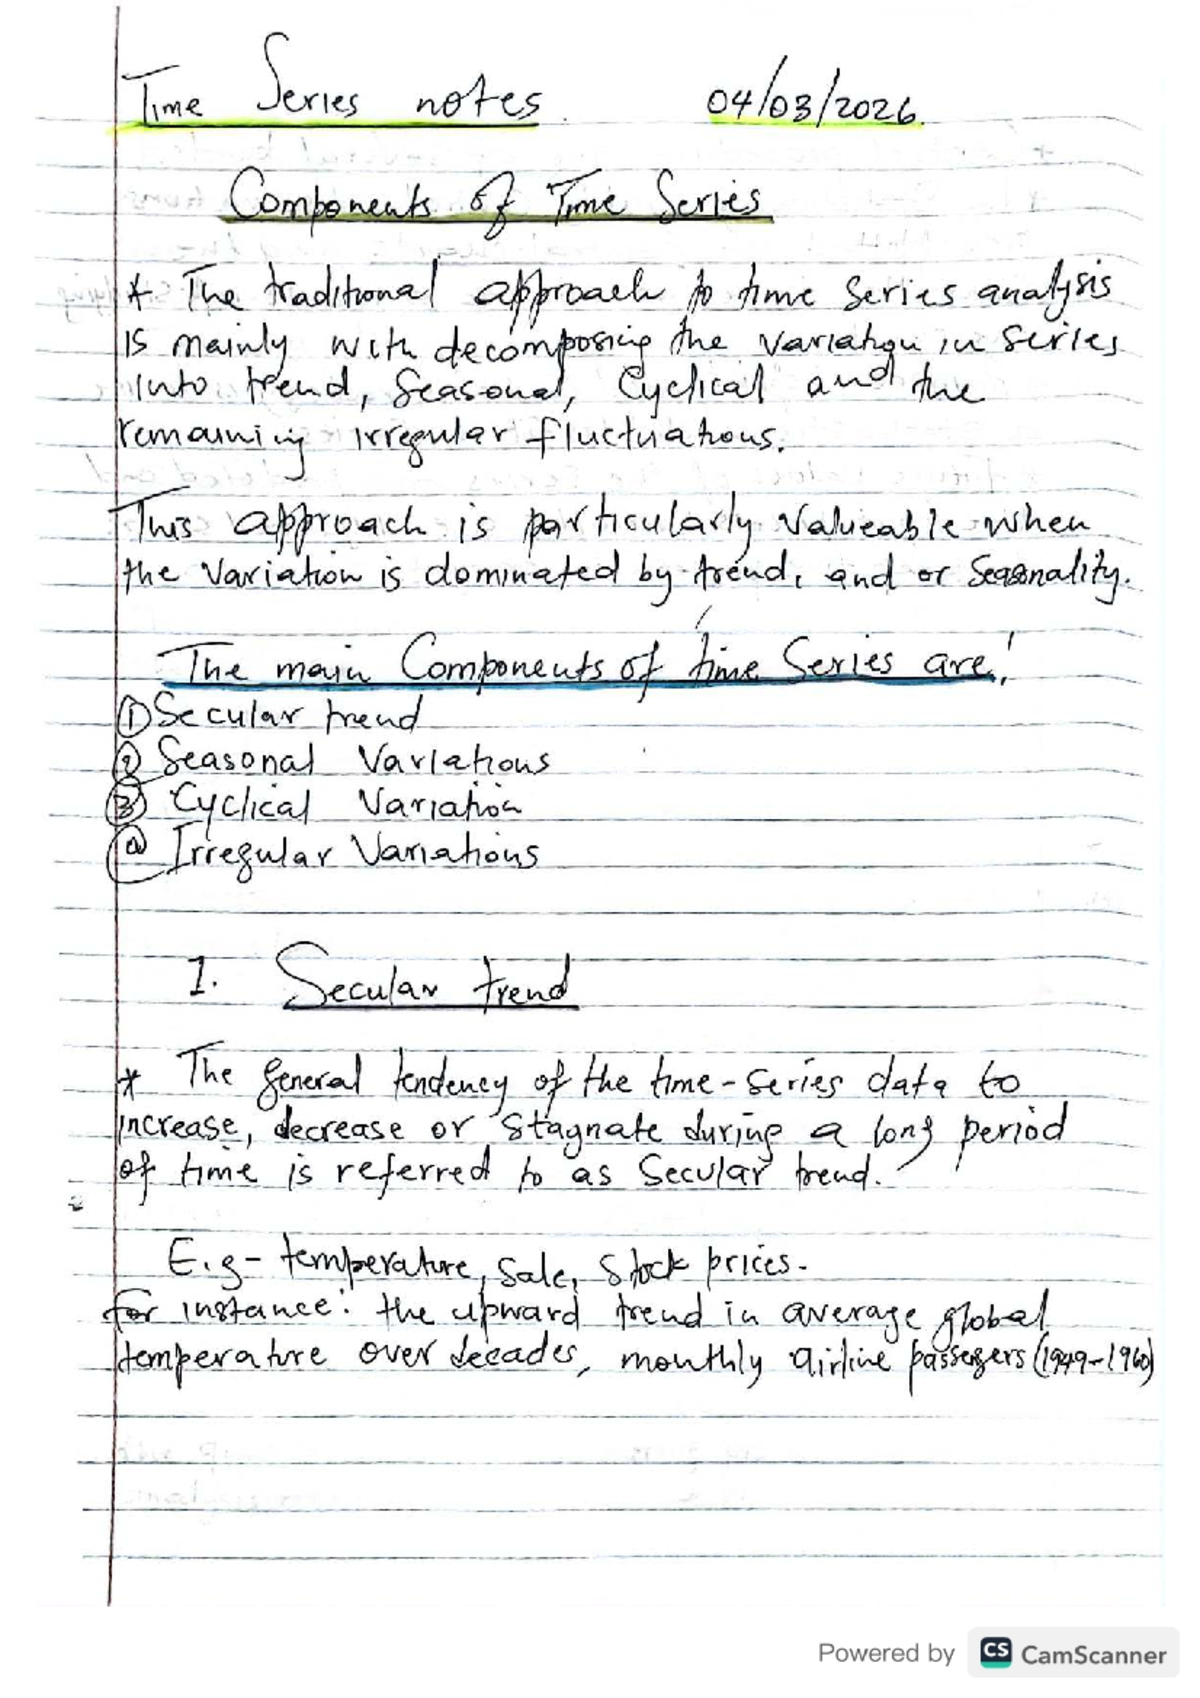 Time Series notes. 04/03/2026.
Components of Time Series
* The traditional approach to time series analysis
is mainly with decomposing the variation in series
into trend, Seasonal, Cyclical and the
remaining irregular fluctuations.
This approach is particularly valueable when
the variation is dominated by trend, and or Seasonality.
The main Components of time Series are!
① Secular trend
② Seasonal Variations
③ Cyclical Variation
④ Irregular Variations
1. Secular trend
* The general tendency of the time-series data to
increase, decrease or stagnate during a long period
of time is referred to as Secular trend.
E.g- temperature, sale, Stock prices.
for instance: the upward trend in average global
temperature over decades, monthly airline passegers (1949-1960)
Powered by CS CamScanner